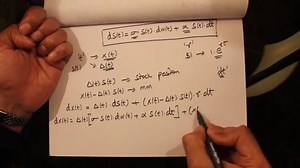 dS(t) = σ S(t)·dW(t) + α S(t)·dt
't' → X(t)
S(t) → Δ(t)
'r'
$1 → 1·e^{rt}
'dt'
Δ(t)·S(t) → stock position
X(t) − Δ(t)·S(t) → mm
dX(t) = Δ(t)·dS(t) + (X(t) − Δ(t)·S(t))·r·dt
dX(t) = Δ(t)[σ S(t)·dW(t) + α S(t)·dt] + (X